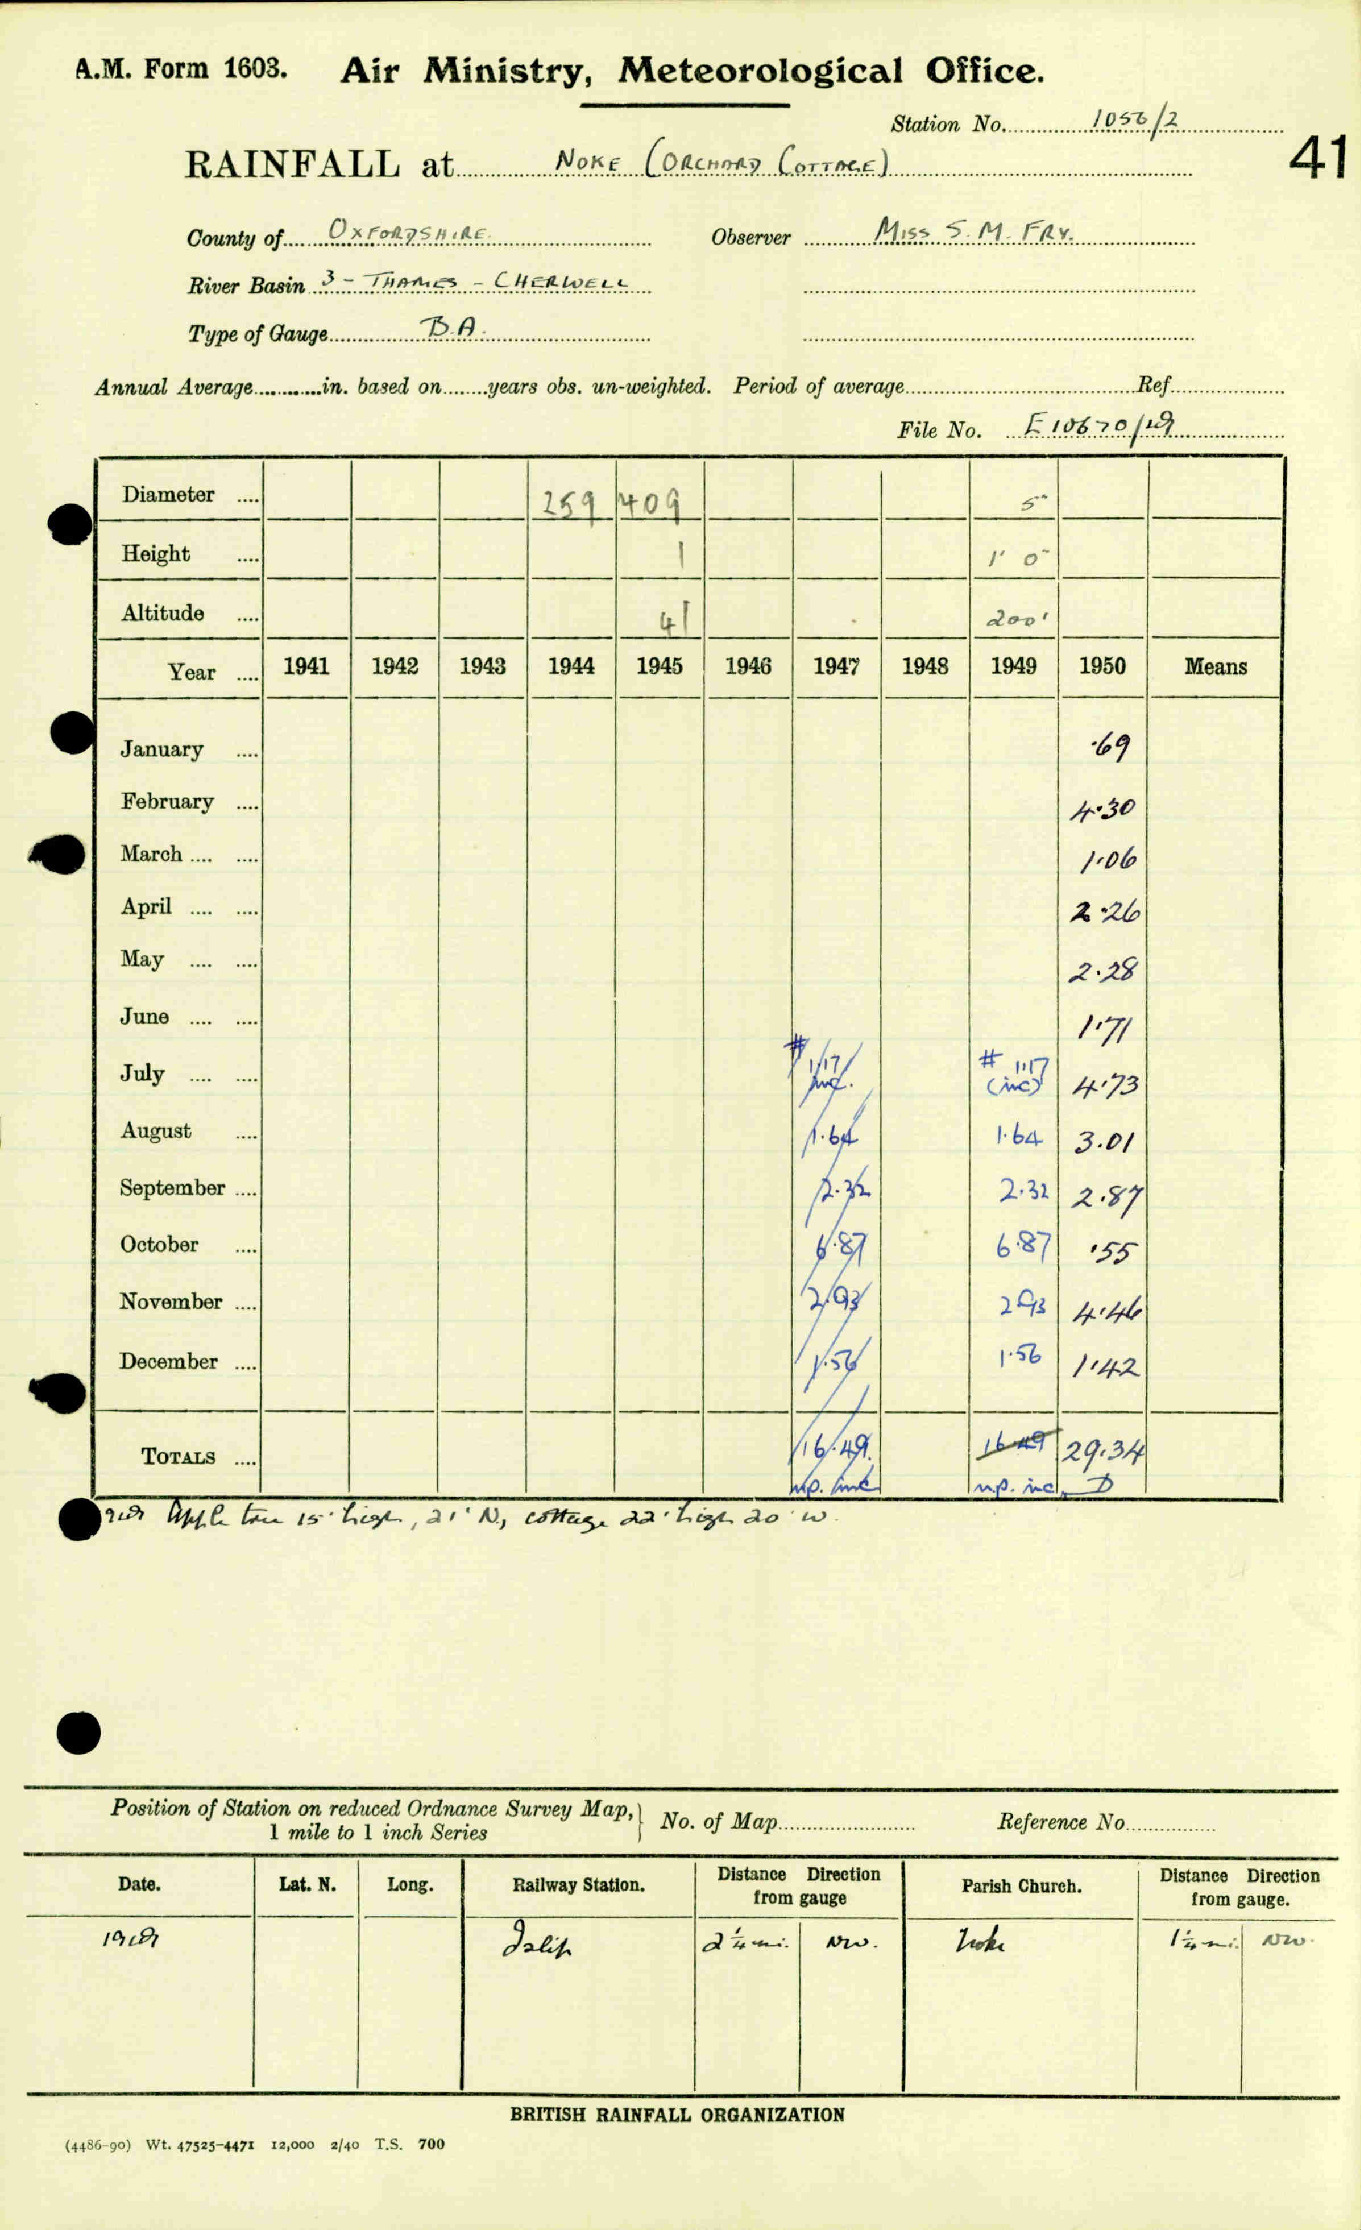 A.M. Form 1603. Air Ministry, Meteorological Office.
Station No. 1056/2
41
RAINFALL at NOKE (ORCHARD COTTAGE)
County of OXFORDSHIRE. Observer MISS S. M. FRY.
River Basin 3 - THAMES - CHERWELL
Type of Gauge B.A.
Annual Average in. based on years obs. un-weighted. Period of average Ref.
File No. E 10670/49
Diameter 259 409 5"
Height 1 1' 0"
Altitude 41 200'
Year 1941 1942 1943 1944 1945 1946 1947 1948 1949 1950 Means
January ·69
February 4·30
March 1·06
April 2·26
May 2·28
June 1·71
July # 1·17 inc. # 1·17 (inc) 4·73
August 1·64 1·64 3·01
September 2·32 2·32 2·87
October 6·87 6·87 ·55
November 2·93 2·93 4·46
December 1·56 1·56 1·42
TOTALS 16·49 16·49 29·34
np. inc np. inc. D
Apple tree 15' high, 21' N, cottage 22' high 20' W.
Position of Station on reduced Ordnance Survey Map, } No. of Map Reference No.
1 mile to 1 inch Series
Date. Lat. N. Long. Railway Station. Distance Direction from gauge Parish Church. Distance Direction from gauge.
1949 Islip 2¼ mi. NW. Noke 1¼ mi. NW.
BRITISH RAINFALL ORGANIZATION
(4486-90) Wt. 47525-4471 12,000 2/40 T.S. 700